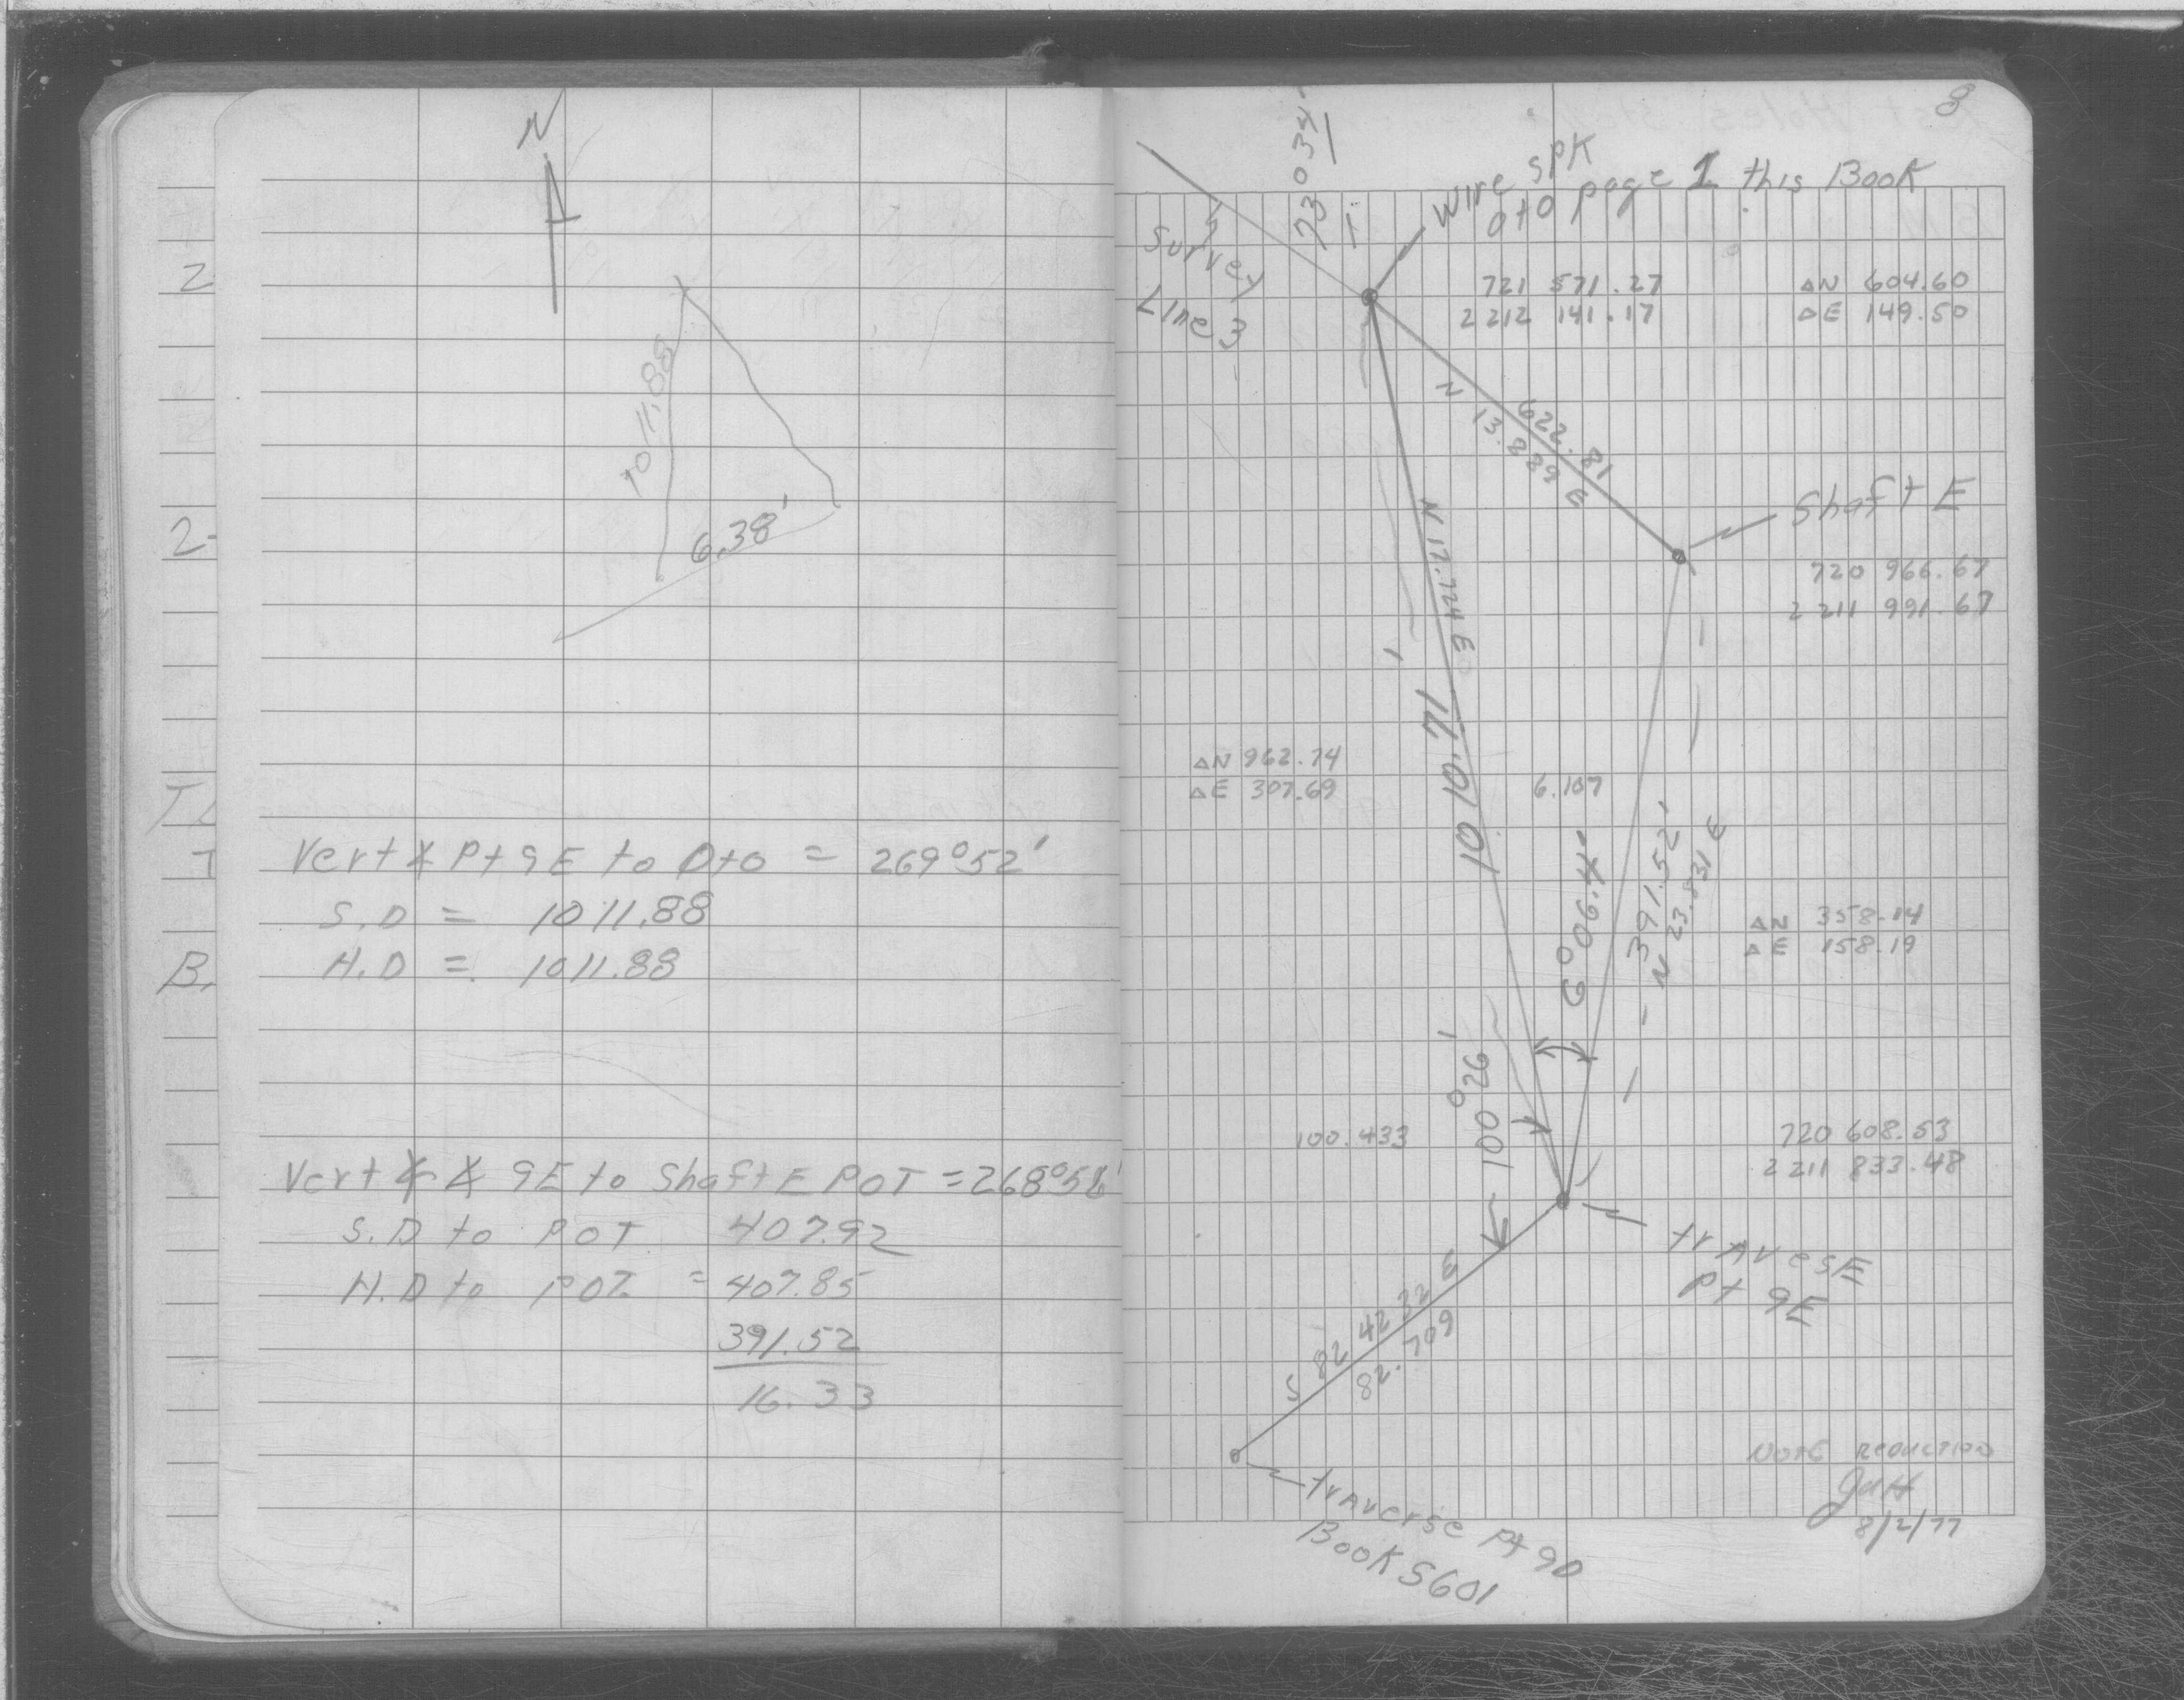 N
1011.88
6.38'
Vert ∡ Pt 9E to 0+0 = 269°52'
S.D = 1011.88
H.D = 1011.88
Vert ∡ ∡ 9E to Shaft E POT = 268°58'
S.D to POT 407.92
H.D to POT = 407.85
391.52
16.33
2
2-
T
B.
8
Wire SPK
0+0 page 1 this Book
Survey
Line 3
721 571.27
2 212 141.17
ΔN 604.60
ΔE 149.50
622.81
N 13.889 E
Shaft E
720 966.67
2 211 991.67
N 17.724 E
1010.71'
ΔN 962.74
ΔE 307.69
6.107
6°06.4'
391.52'
N 23.831 E
ΔN 358.14
ΔE 158.19
100°26'
100.433
720 608.53
2 211 833.48
travesE
Pt 9E
S 82 42 32 E
82.709
traverse Pt 90
Book 5601
NOTE REDUCTION
8/2/77